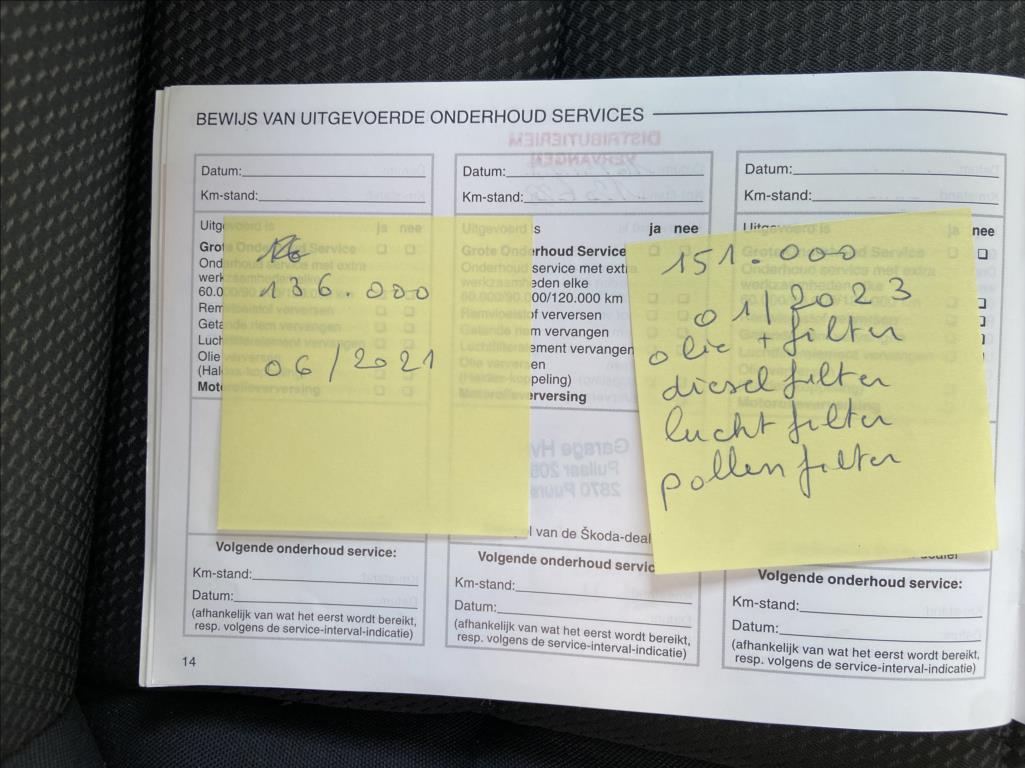 BEWIJS VAN UITGEVOERDE ONDERHOUD SERVICES
DISTRIBUTIERIEM
VERVANGEN
Datum:
Km-stand:
Uitgevoerd is ja nee
Grote Onderhoud Service
Onderhoud service met extra
werkzaamheden elke
60.000/90.000/120.000 km
Remvloeistof verversen
Getande riem vervangen
Luchtfilterelement vervangen
Olie verversen
(Haldex-koppeling)
Motorolieverversing
136.000
06/2021
Volgende onderhoud service:
Km-stand:
Datum:
(afhankelijk van wat het eerst wordt bereikt,
resp. volgens de service-interval-indicatie)
14
Datum:
Km-stand:
is ja nee
Grote Onderhoud Service
service met extra
eden elke
00/120.000 km
f verversen
m vervangen
ement vervangen
sen
peling)
verversing
Garage
2870 Puurs
l van de Škoda-deal
Volgende onderhoud servic
Km-stand:
Datum:
(afhankelijk van wat het eerst wordt bereikt,
resp. volgens de service-interval-indicatie)
Datum:
Km-stand:
ja nee
151.000
01/2023
olie + filter
dieselfilter
lucht filter
pollenfilter
Volgende onderhoud service:
Km-stand:
Datum:
(afhankelijk van wat het eerst wordt bereikt,
resp. volgens de service-interval-indicatie)